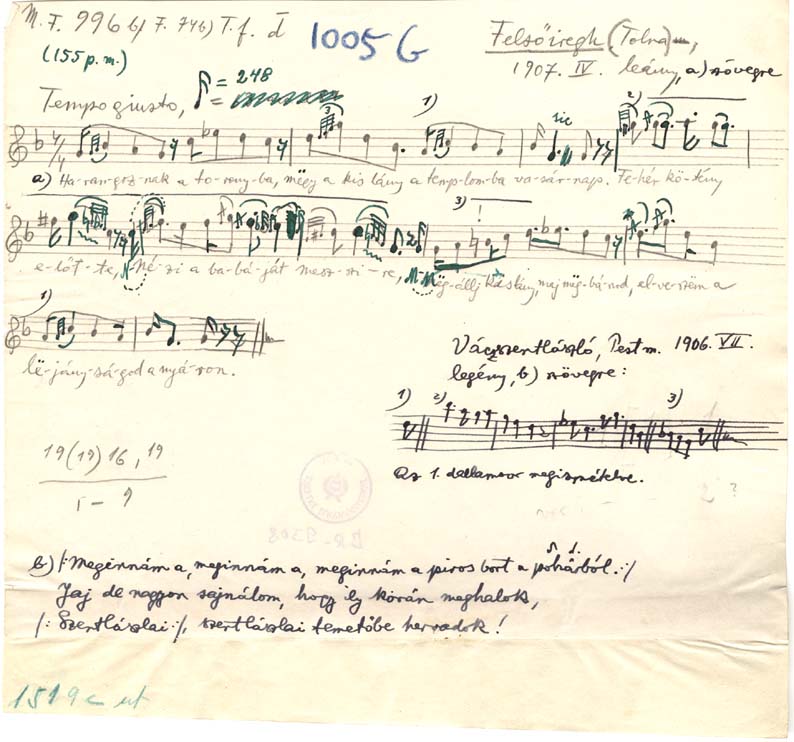 M. F. 996 b) F. 746) T. f. d
1005 G
Felsőiregh (Tolna),
(155 p. m.)
1907. IV. leány, a) szövegre
Tempo giusto, = 248
1) 3 2)
sic
a) Ha-ran-goz-nak a to-rony-ba, mëgy a kis lány a temp-lom-ba va-sár-nap. Fe-hér kö-tény
3) !
e-lőt-te, Né-zi a ba-bá-ját mesz-szi-re, Mëg-állj kis lány, maj mëg-bá-nod, el-ve-szëm a
1)
lë-jány-sá-god a nyá-ron.
Vácszentlászló, Pest m. 1906. VII.
legény, b) szövegre:
1) 2) 3)
Az 1. dallamsor megismételve.
19 (19) 16, 19
1 - 9
b) /: Meginnám a, meginnám a, meginnám a piros bort a pohárból. :/
Jaj de nagyon sajnálom, hogy ily korán meghalok,
/: Szentlászlai :/, szentlászlai temetőbe hervadok!
1519c ut